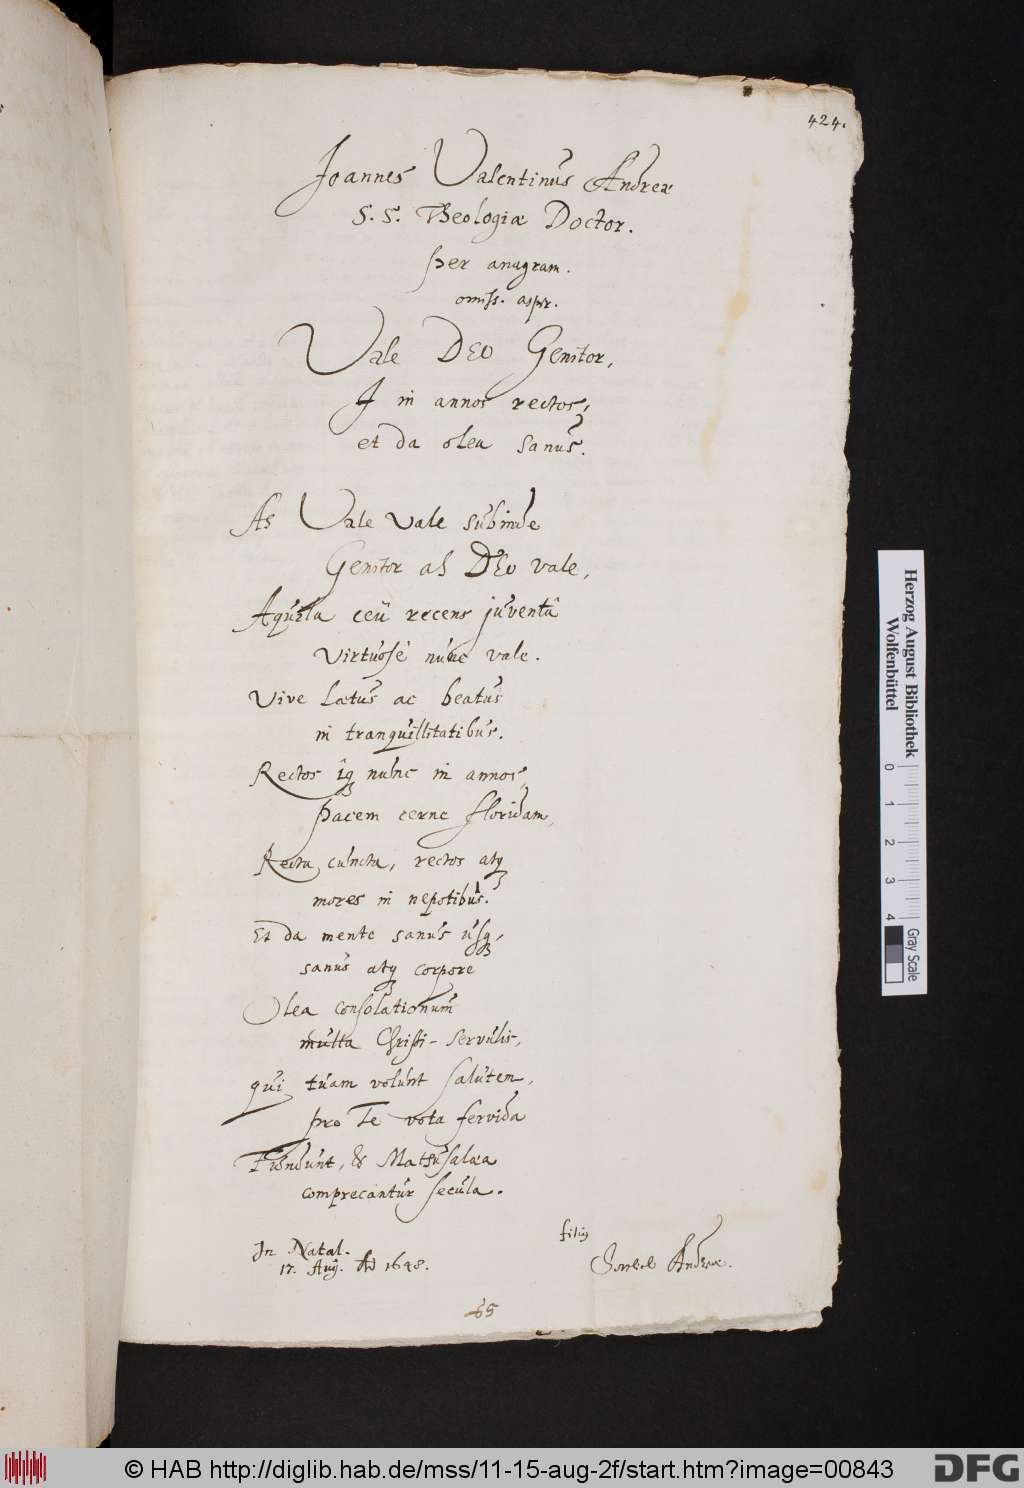 424.
Joannes Valentinus Andreæ
S. S. Theologiæ Doctor.
per anagram.
omiss. aspir.
Vale DEO Genitor,
I in annos rectos,
et da olea sanus.
As Vale vale subinde
Genitor ah DEO vale,
Aquila ceu recens juventâ
virtuose nunc vale.
Vive lætus ac beatus
in tranquillitatibus.
Rectos iq nunc in annos,
pacem cerne floridam,
Recta cuncta, rectos atq
mores in nepotibus.
Et da mente sanus usq,
sanus atq corpore
Olea consolationum
multa Christi-servulis,
qui tuam volunt salutem,
pro Te vota fervida
Fundunt, & Matusalæa
comprecantur secula.
In Natal.
17. Aug. Ao 1648.
filius
Andreæ.
65
Herzog August Bibliothek
Wolfenbüttel
0 1 2 3 4
Gray Scale
© HAB http://diglib.hab.de/mss/11-15-aug-2f/start.htm?image=00843
DFG